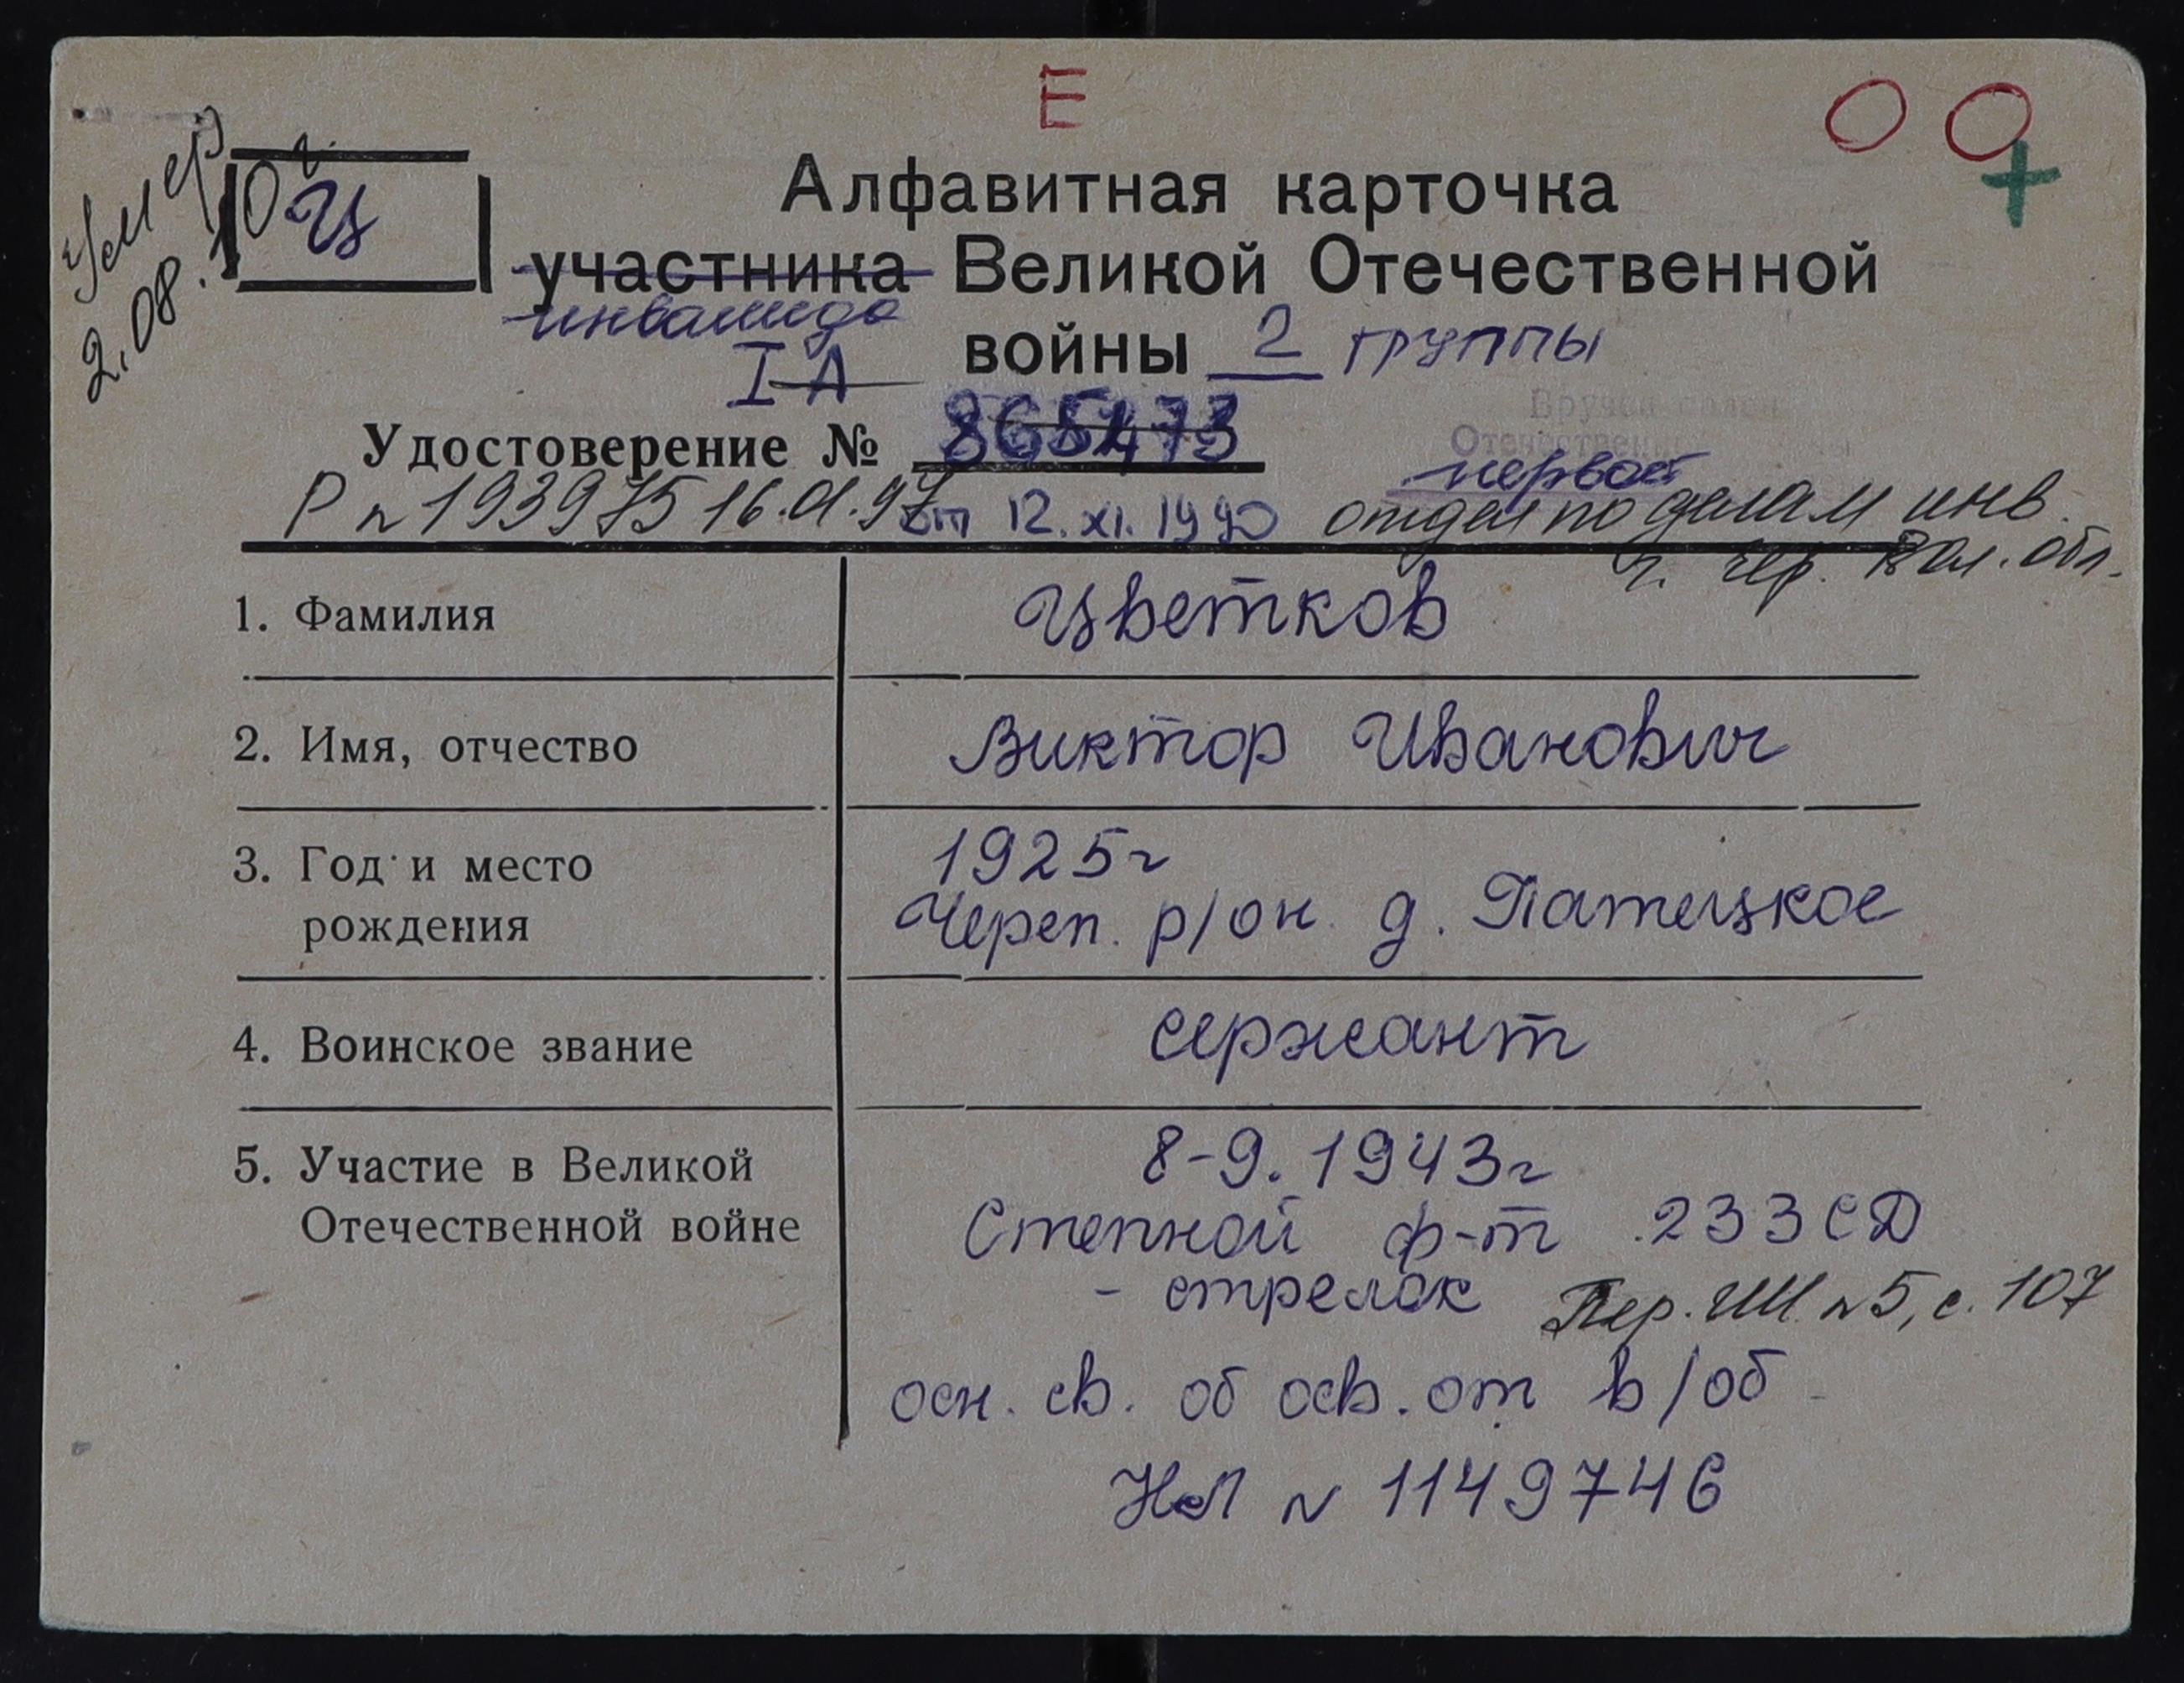 Е
О О
+
Умер
2.08.10 г.
Ц
Алфавитная карточка
участника Великой Отечественной
инвалида
войны 2 группы
I А
Удостоверение №
Вручен
Отечествен
первой
Р № 193975 16.01.97
от 12.XI.1990
отдел по делам инв.
г. Чер. Вол. обл.
1. Фамилия
Цветков
2. Имя, отчество
Виктор Иванович
3. Год и место
рождения
1925г
Череп. р/он. д. Патецкое
4. Воинское звание
сержант
5. Участие в Великой
Отечественной войне
8-9.1943г
Степной ф-т 233 СД
- стрелок
Пер. ИИ №5, с. 107
осн. св. об осв. от в/об
НЛ № 1149746